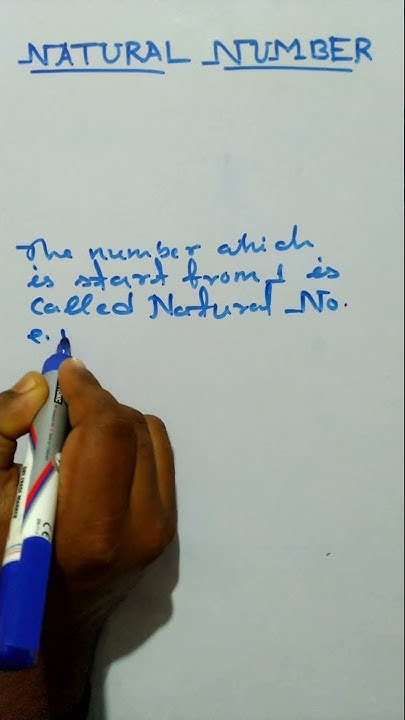 NATURAL NUMBER
The number which
is start from 1 is
called Natural No.
e.